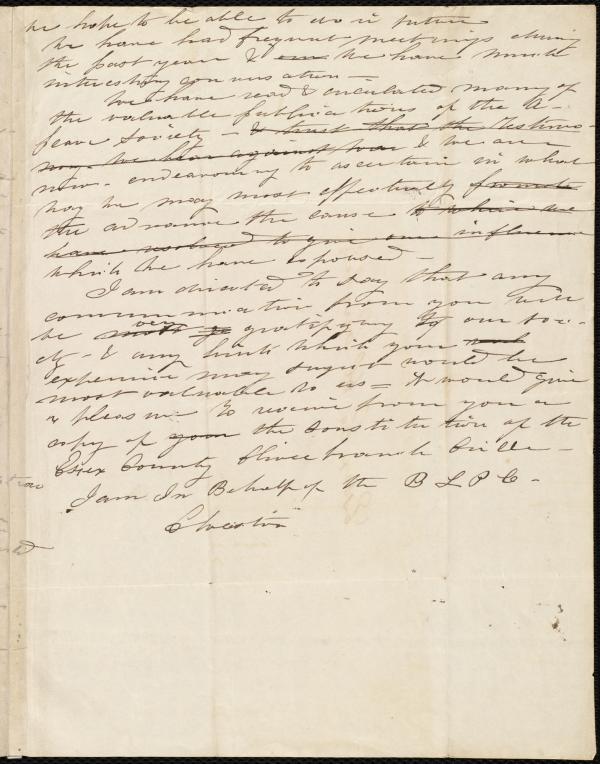 we hope to be able to do in future
We have had frequent meetings during
the past year & our We have much
interesting conversation —
We have read & circulated many of
the valuable publications of the A-
peace Society — & trust that the testimo-
ny we bear against war & we are
now endeavouring to ascertain in what
way we may most effectually promote
the advance the cause to which we
have resolved to give our influence
which we have espoused —
I am directed to say that any
communication from you will
be most very gratifying to our Soci-
ety — & any hints which your
experience may sugest would be
most valuable to us = It would give
us pleasure to receive from you a
copy of your the Constitution of the
Essex County Olivebranch Circle —
I am In Behalf of the B L P C —